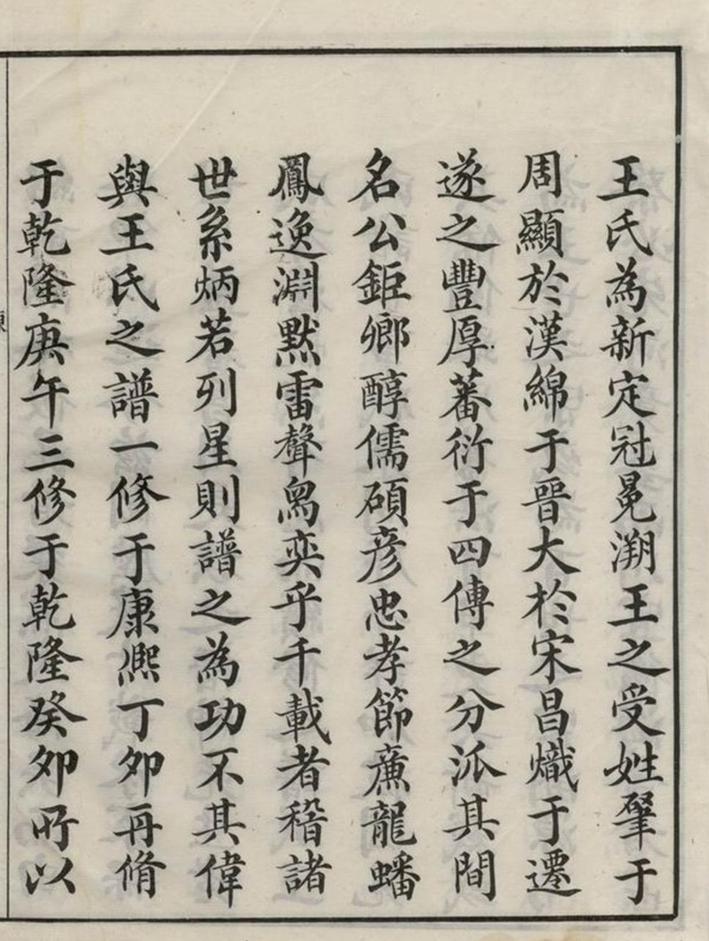 王氏為新定冠冕溯王之受姓肇于
周顯於漢綿于晉大於宋昌熾于遷
遂之豐厚蕃衍于四傳之分派其間
名公鉅鄉醇儒碩彥忠孝節亷龍蟠
鳳逸淵默雷聲舄奕乎千載者稽諸
世系炳若列星則譜之為功不其偉
與王氏之譜一修于康熙丁夘再脩
于乾隆庚午三修于乾隆癸夘所以